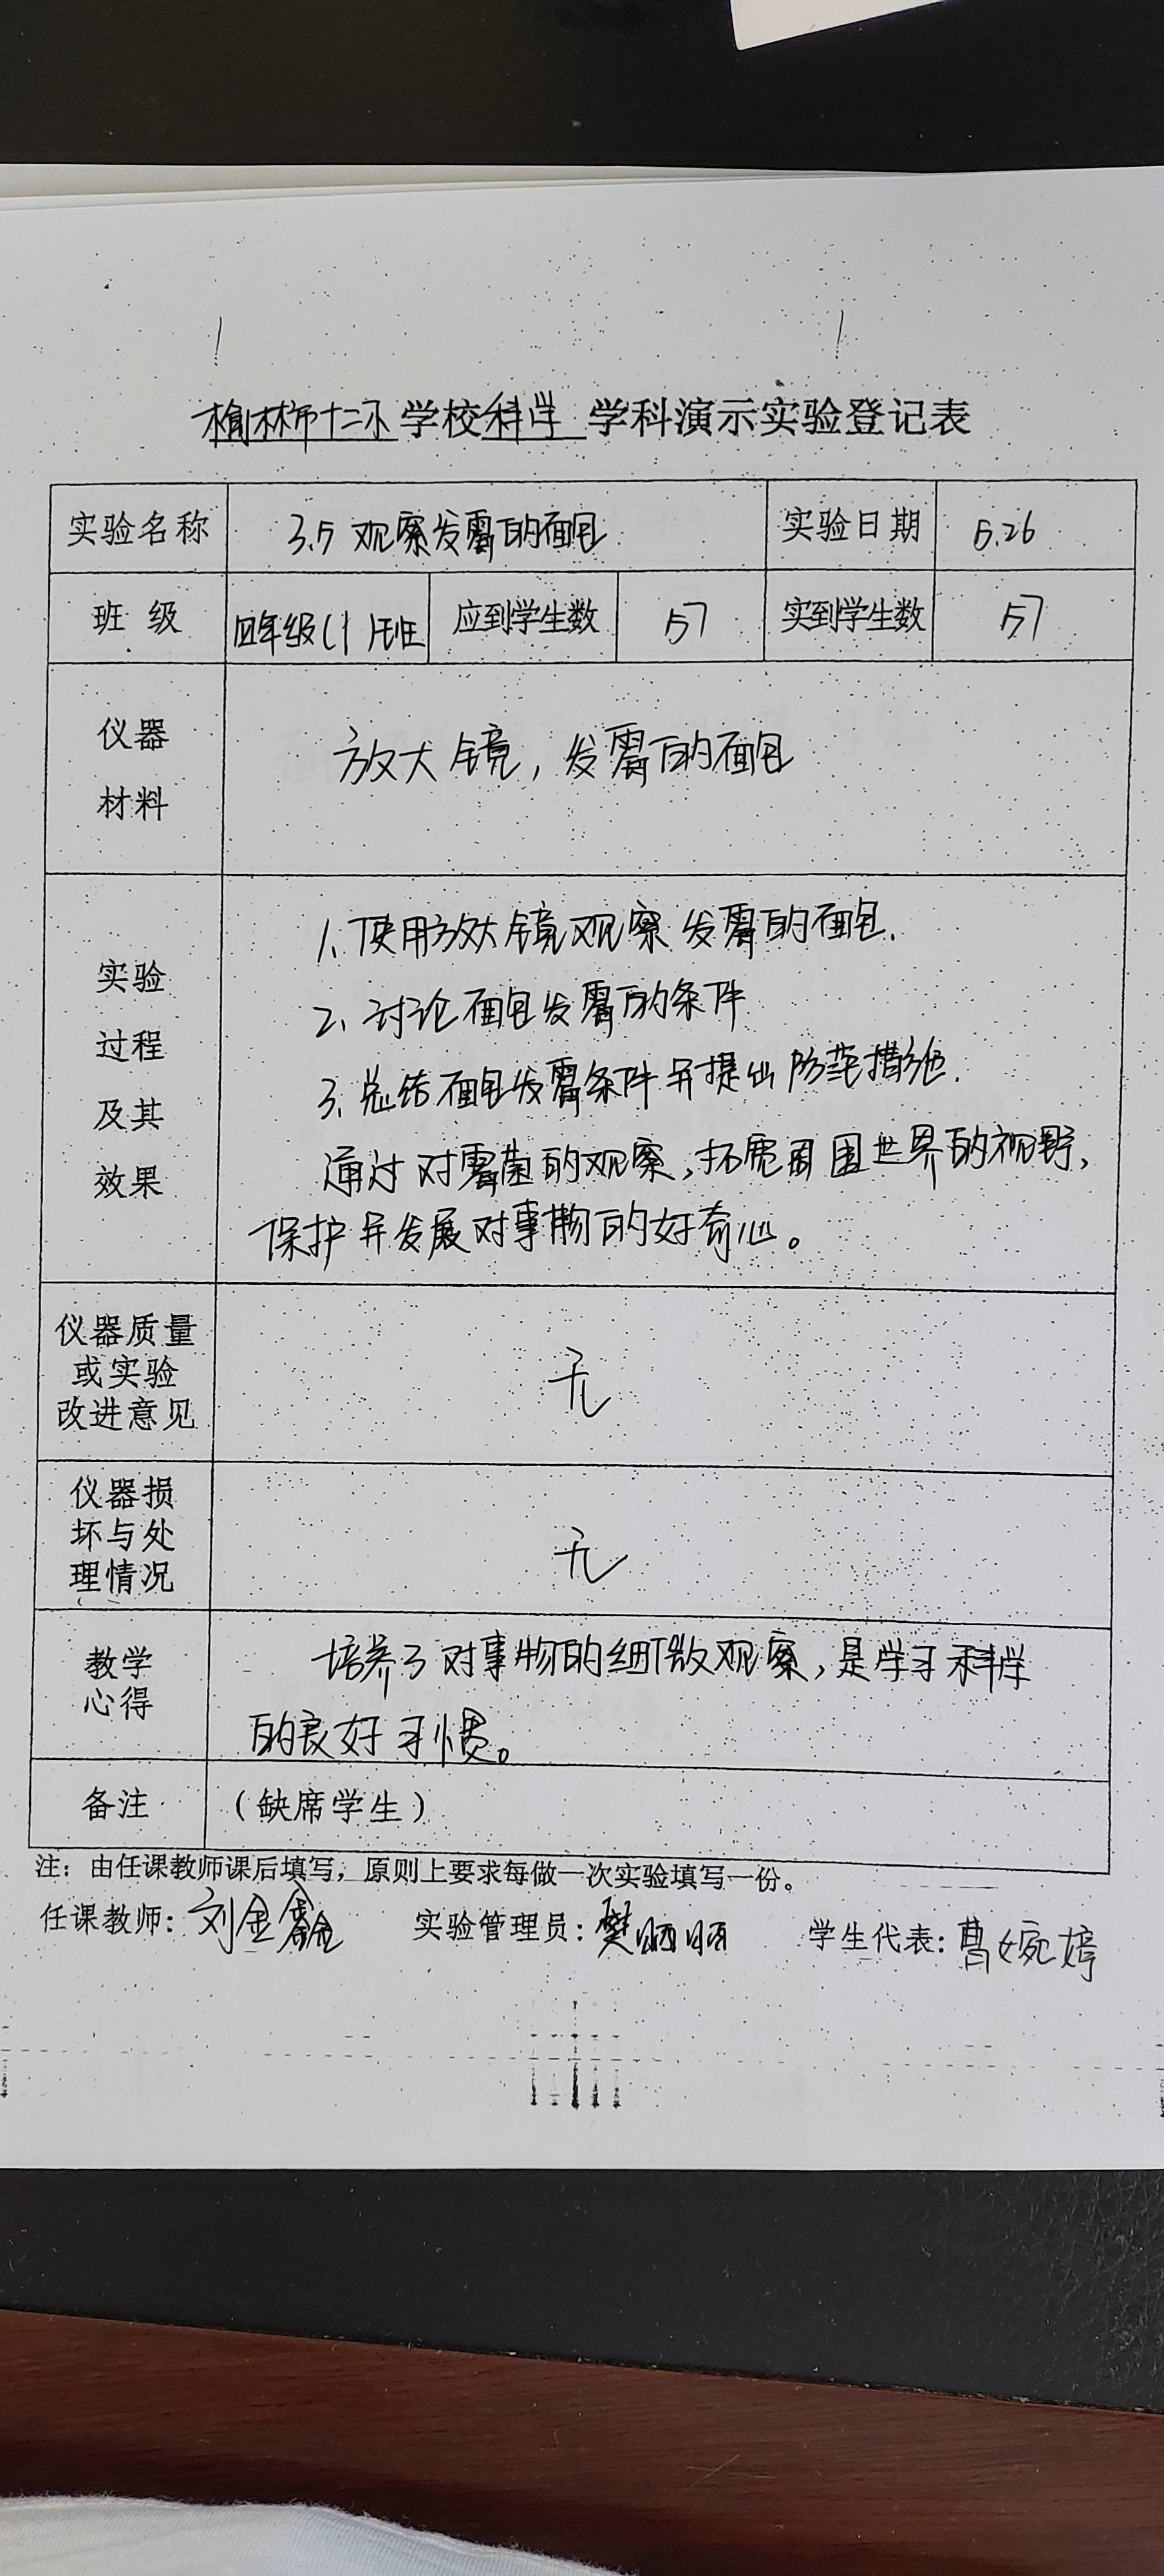 榆林市十二小学校科学学科演示实验登记表
实验名称 3.5 观察发霉的面包 实验日期 5.26
班 级 四年级(1)班 应到学生数 57 实到学生数 57
仪器
材料
放大镜，发霉的面包
实验
过程
及其
效果
1、使用放大镜观察发霉的面包.
2、讨论面包发霉的条件
3、总结面包发霉条件并提出防范措施.
通过对霉菌的观察，拓宽周围世界的视野，
保护并发展对事物的好奇心。
仪器质量
或实验
改进意见
无
仪器损
坏与处
理情况
无
教学
心得
培养了对事物的细微观察，是学习科学
的良好习惯。
备注 （缺席学生）
注：由任课教师课后填写，原则上要求每做一次实验填写一份。
任课教师：刘金鑫 实验管理员：樊 学生代表：曹婉婷